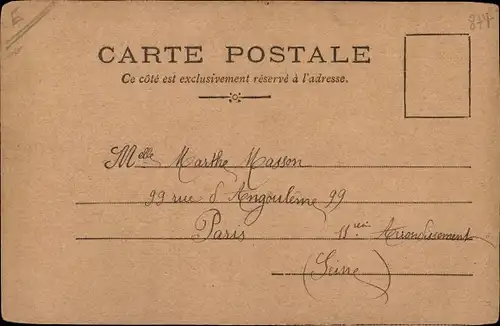 877
CARTE POSTALE
Ce côté est exclusivement réservé à l'adresse.
Melle Marthe Masson
99 rue d'Angoulême 99
Paris 11me Arrondissement
(Seine)